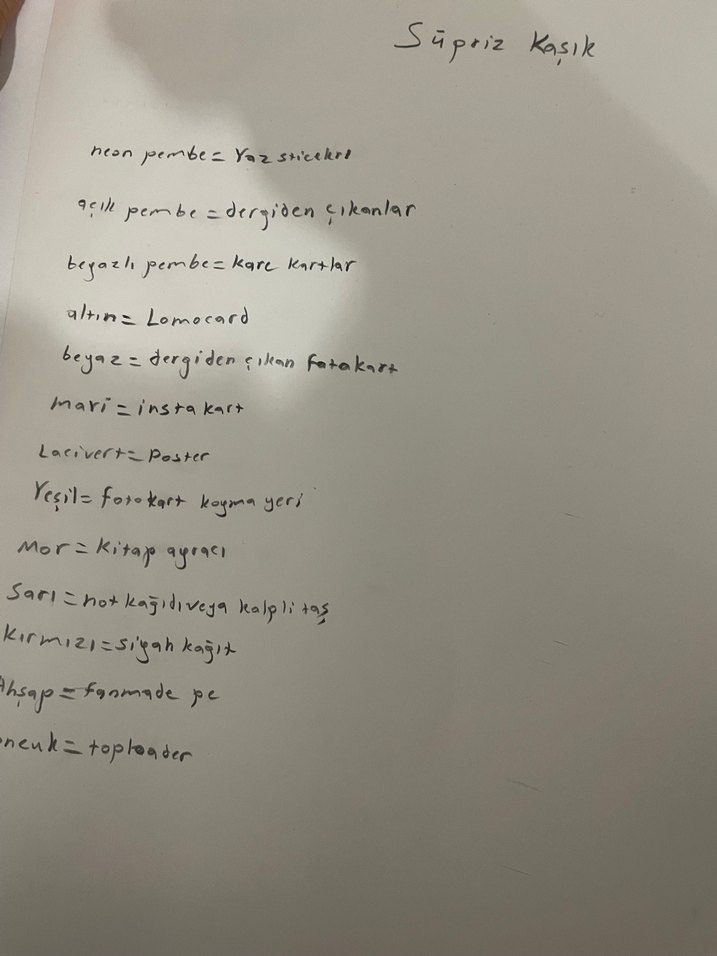 Süpriz Kaşık
neon pembe = Yaz sticekrı
açık pembe = dergiden çıkanlar
beyazlı pembe = kare kartlar
altın = Lomocard
beyaz = dergiden çıkan fotokart
mavi = insta kart
Lacivert = Poster
Yeşil = fotokart koyma yeri
Mor = kitap ayracı
Sarı = not kağıdı veya kalpli taş
Kırmızı = siyah kağıt
Ahşap = fanmade pc
oncuk = toploader